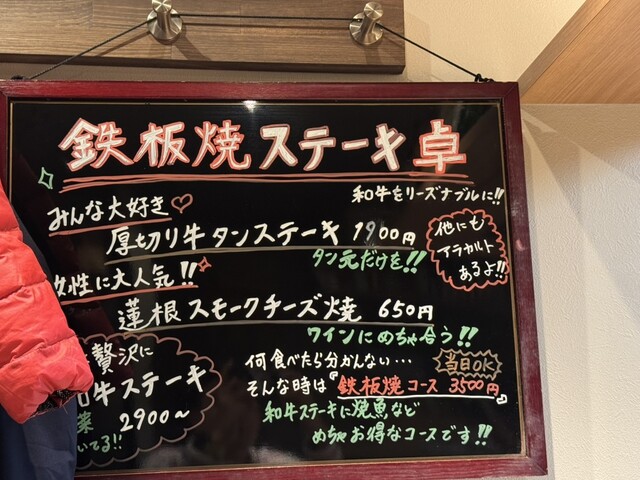 鉄板焼ステーキ卓
和牛をリーズナブルに!!
みんな大好き♡
厚切り牛タンステーキ 1900円
タン元だけを!!
他にも
アラカルト
あるよ!!
女性に大人気!!
蓮根スモークチーズ焼 650円
ワインにめちゃ合う!!
贅沢に
牛ステーキ
2900～
てる!!
何食べたら分かんない…
当日OK
そんな時は『鉄板焼コース 3500円』
和牛ステーキに焼魚など
めちゃお得なコースです!!